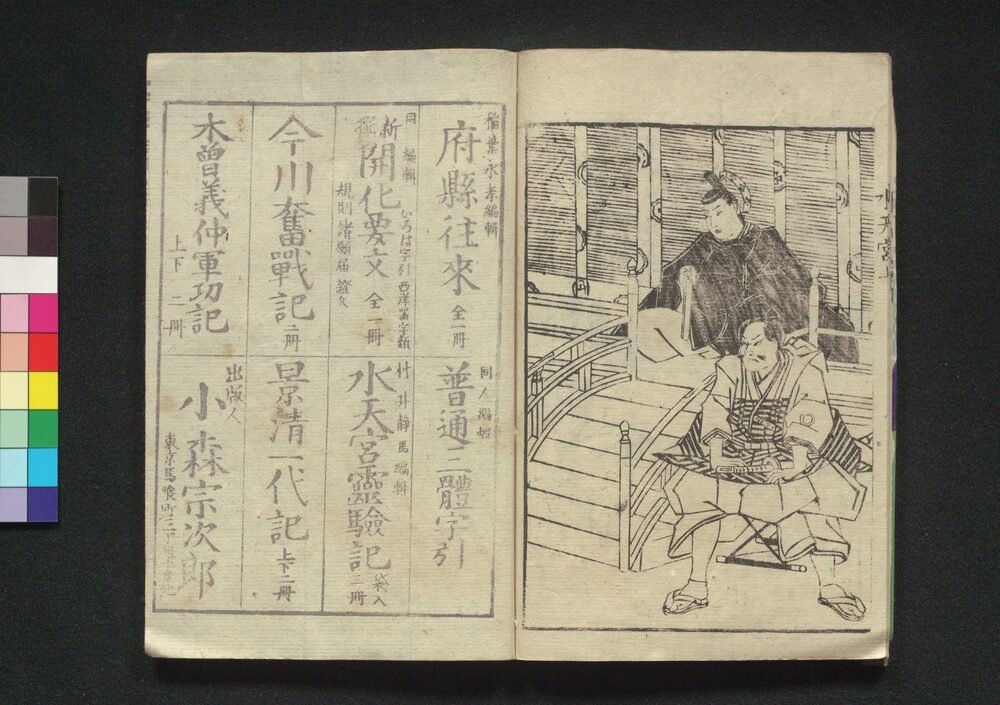 稲葉永孝編輯
府縣往來 全一冊
同人編輯
普通三體字引
同 編輯
いろは字引西洋萬字類
新撰 開化要文 全一冊
規則諸願届證文
村井靜馬編輯
水天宮靈驗記 袋入 二冊
今川奮戰記 二冊
景清一代記 上下二冊
木曾義仲軍功記
上下 二冊
出版人
小森宗次郎
東京馬喰町三丁目
水天宮